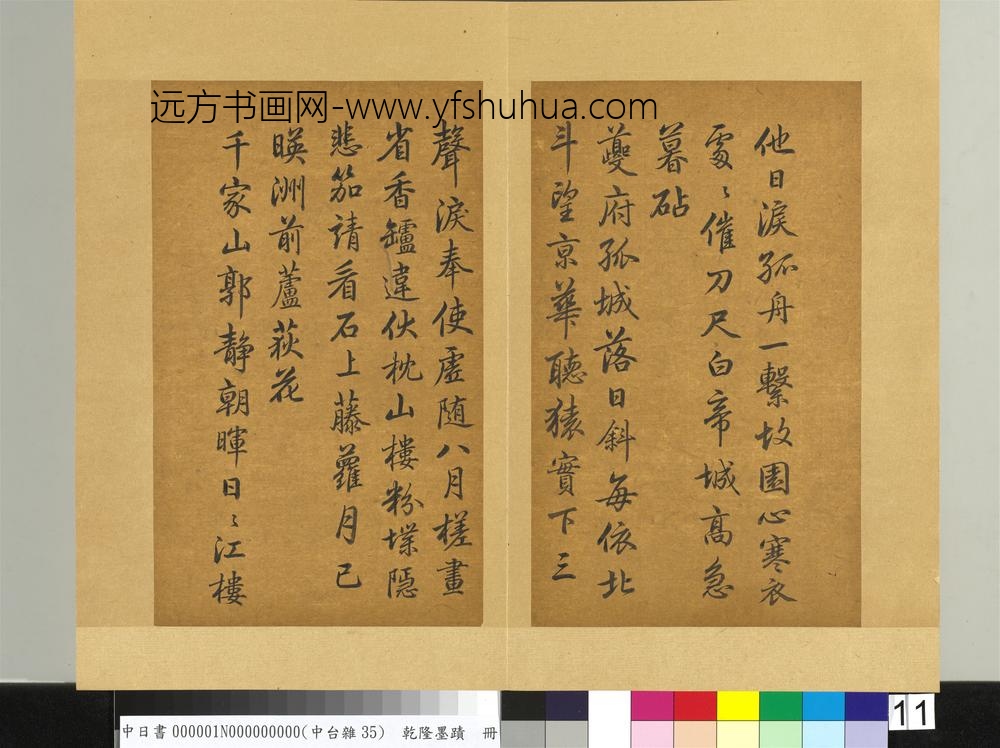 远方书画网-www.yfshuhua.com
他日淚孤舟一繫故園心寒衣
處〻催刀尺白帝城高急
暮砧
夔府孤城落日斜每依北
斗望京華聽猿實下三
聲淚奉使虛随八月槎畫
省香罏違伏枕山樓粉堞隱
悲笳請看石上藤蘿月已
暎洲前蘆荻花
千家山郭靜朝暉日〻江樓
中日書 000001N000000000(中台雜 35) 乾隆墨蹟 冊
11